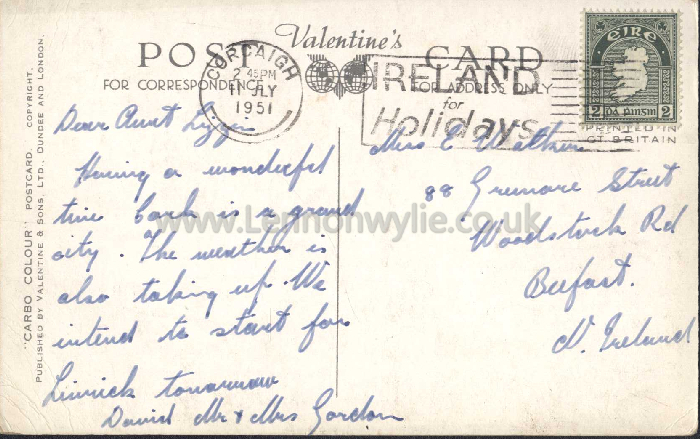 POST CARD
Valentine's
FOR CORRESPONDENCE
FOR ADDRESS ONLY
CORCAIGH
2 45 PM
11 JLY
1951
IRELAND
for
Holidays
EIRE
2 DÁ PINSIN 2
PRINTED IN
GT BRITAIN
"CARBO COLOUR" POSTCARD. COPYRIGHT.
PUBLISHED BY VALENTINE & SONS, LTD., DUNDEE AND LONDON.
Dear Aunt Lizzie
Having a wonderful
time Cork is a grand
city. The weather is
also taking up. We
intend to start for
Limrick tomorrow
David Mr & Mrs Gordon
E Watkins
88 Street
Woodstock Rd
Belfast.
N. Ireland
www.Lennonwylie.co.uk